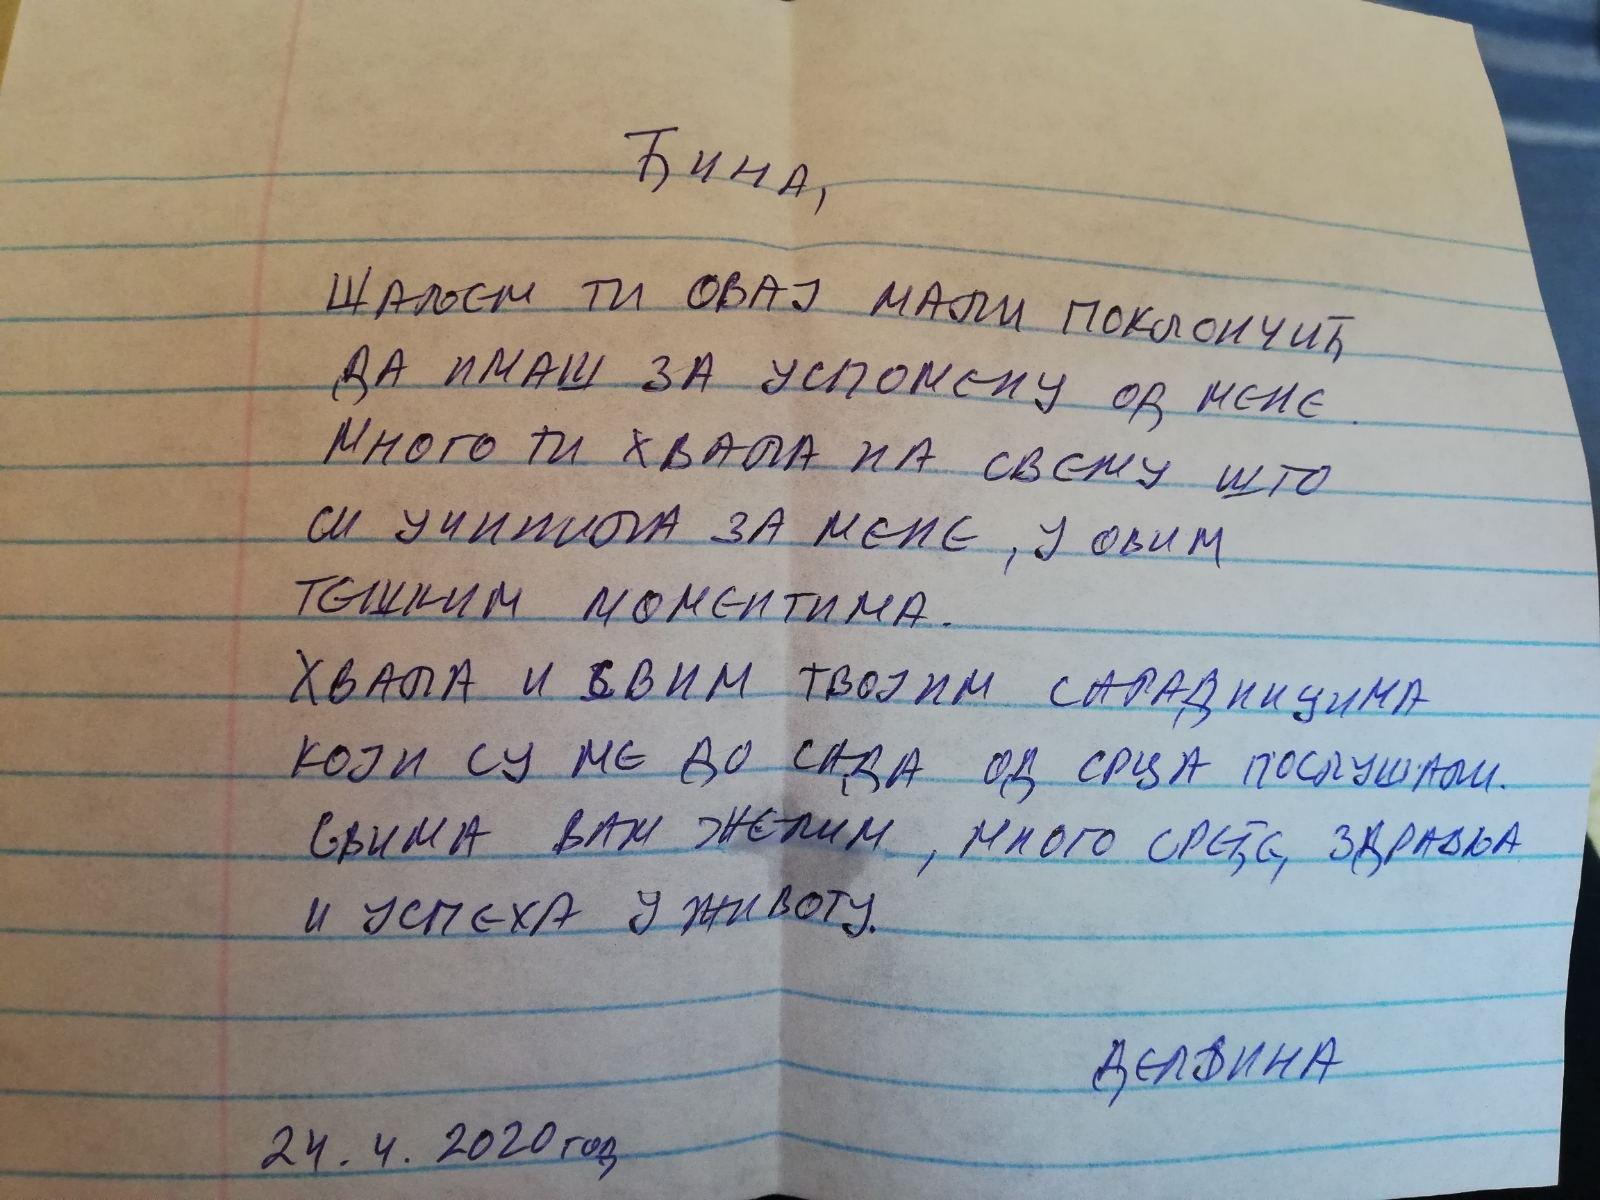 Ђина,
Шаљем ти овај мали поклончић
да имаш за успомену од мене.
Много ти хвала на свему што
си учинила за мене, у овим
тешким моментима.
Хвала и свим твојим сарадницима
који су ме до сада од срца послушали.
Свима вам желим, много среће, здравља
и успеха у животу.
Делвина
24.4.2020 год